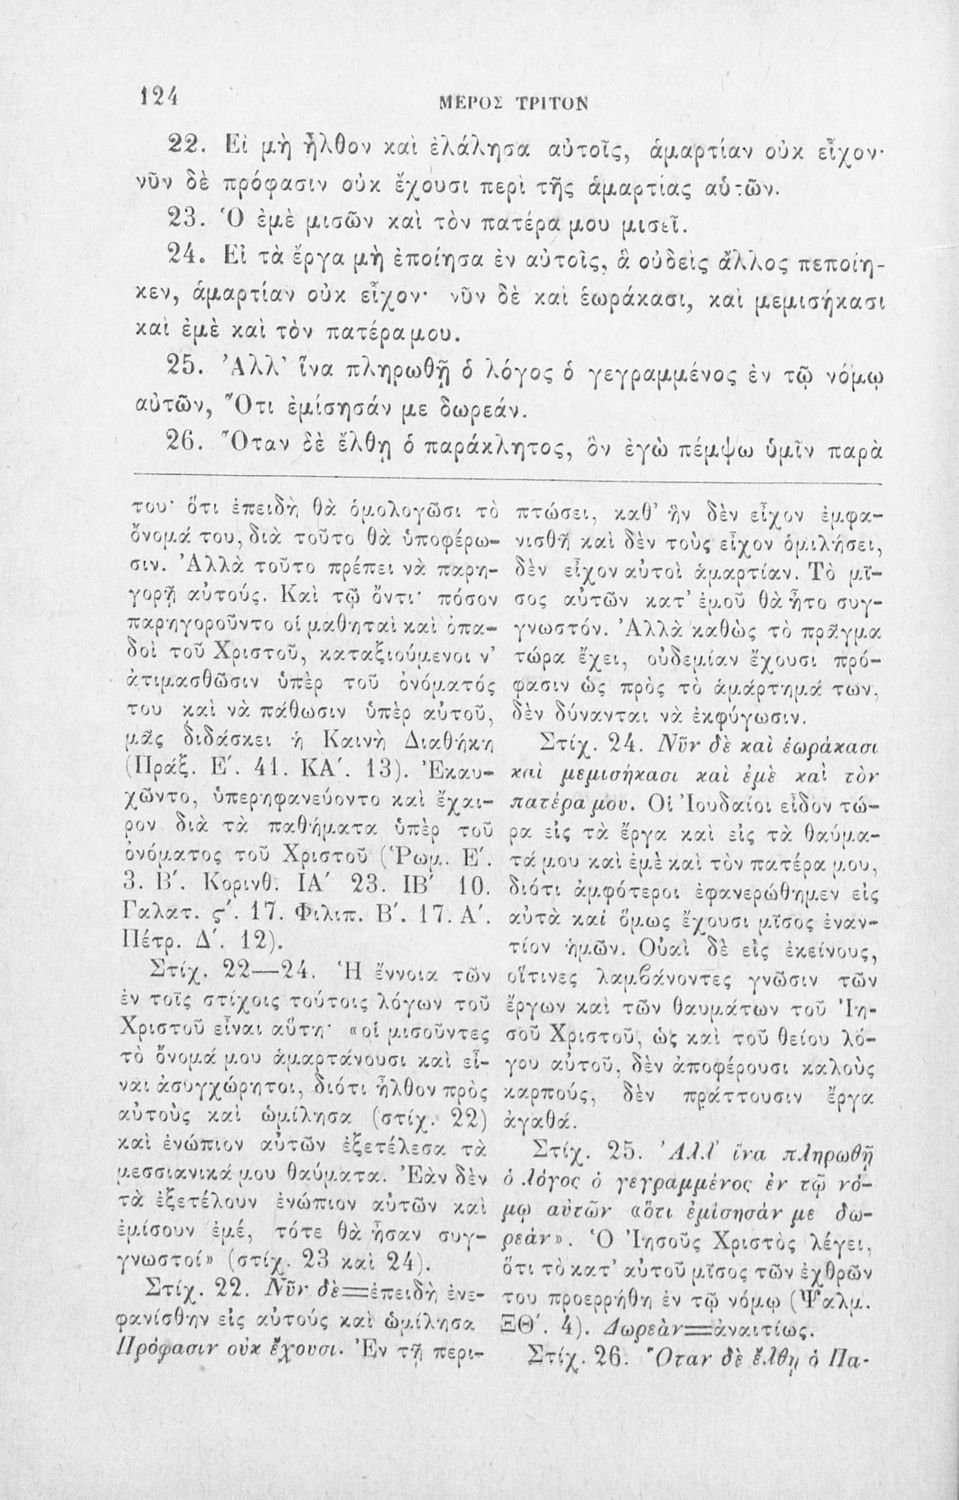 124
ΜΕΡΟΣ ΤΡΙΤΟΝ
22. Εἰ μὴ ἦλθον καὶ ἐλάλησα αὐτοῖς, ἁμαρτίαν οὐκ εἶχον·
νῦν δὲ πρόφασιν οὐκ ἔχουσι περὶ τῆς ἁμαρτίας αὑτῶν.
23. Ὁ ἐμὲ μισῶν καὶ τὸν πατέρα μου μισεῖ.
24. Εἰ τὰ ἔργα μὴ ἐποίησα ἐν αὐτοῖς, ἃ οὐδεὶς ἄλλος πεποίη-
κεν, ἁμαρτίαν οὐκ εἶχον· νῦν δὲ καὶ ἑωράκασι, καὶ μεμισήκασι
καὶ ἐμὲ καὶ τὸν πατέρα μου.
25. Ἀλλ' ἵνα πληρωθῇ ὁ λόγος ὁ γεγραμμένος ἐν τῷ νόμῳ
αὐτῶν, Ὅτι ἐμίσησάν με δωρεάν.
26. Ὅταν δὲ ἔλθῃ ὁ παράκλητος, ὃν ἐγὼ πέμψω ὑμῖν παρὰ
του· ὅτι ἐπειδὴ θὰ ὁμολογῶσι τὸ
ὄνομά του, διὰ τοῦτο θὰ ὑποφέρω-
σιν. Ἀλλὰ τοῦτο πρέπει νὰ παρη-
γορῇ αὐτούς. Καὶ τῷ ὄντι· πόσον
παρηγοροῦντο οἱ μαθηταὶ καὶ ὀπα-
δοὶ τοῦ Χριστοῦ, καταξιούμενοι ν'
ἀτιμασθῶσιν ὑπὲρ τοῦ ὀνόματός
του καὶ νὰ πάθωσιν ὑπὲρ αὐτοῦ,
μᾶς διδάσκει ἡ Καινὴ Διαθήκη
(Πράξ. Ε΄. 41. ΚΑ΄. 13). Ἐκαυ-
χῶντο, ὑπερηφανεύοντο καὶ ἔχαι-
ρον διὰ τὰ παθήματα ὑπὲρ τοῦ
ὀνόματος τοῦ Χριστοῦ (Ῥωμ. Ε΄.
3. Β΄. Κορινθ. ΙΑ΄ 23. ΙΒ΄ 10.
Γαλατ. ϛ΄. 17. Φιλιπ. Β΄. 17. Α΄.
Πέτρ. Δ΄. 12).
Στίχ. 22—24. Ἡ ἔννοια τῶν
ἐν τοῖς στίχοις τούτοις λόγων τοῦ
Χριστοῦ εἶναι αὕτη· «οἱ μισοῦντες
τὸ ὄνομά μου ἁμαρτάνουσι καὶ εἶ-
ναι ἀσυγχώρητοι, διότι ἦλθον πρὸς
αὐτοὺς καὶ ὡμίλησα (στίχ. 22)
καὶ ἐνώπιον αὐτῶν ἐξετέλεσα τὰ
μεσσιανικά μου θαύματα. Ἐὰν δὲν
τὰ ἐξετέλουν ἐνώπιον αὐτῶν καὶ
ἐμίσουν ἐμέ, τότε θὰ ἦσαν συγ-
γνωστοί» (στίχ. 23 καὶ 24).
Στίχ. 22. Νῦν δὲ=ἐπειδὴ ἐνε-
φανίσθην εἰς αὐτοὺς καὶ ὡμίλησα
Πρόφασιν οὐκ ἔχουσι. Ἐν τῇ περι-
πτώσει, καθ' ἣν δὲν εἶχον ἐμφα-
νισθῆ καὶ δὲν τοὺς εἶχον ὁμιλήσει,
δὲν εἶχον αὐτοὶ ἁμαρτίαν. Τὸ μῖ-
σος αὐτῶν κατ' ἐμοῦ θὰ ἦτο συγ-
γνωστόν. Ἀλλὰ καθὼς τὸ πρᾶγμα
τώρα ἔχει, οὐδεμίαν ἔχουσι πρό-
φασιν ὡς πρὸς τὸ ἁμάρτημά των,
δὲν δύνανται νὰ ἐκφύγωσιν.
Στίχ. 24. Νῦν δὲ καὶ ἑωράκασι
καὶ μεμισήκασι καὶ ἐμὲ καὶ τὸν
πατέρα μου. Οἱ Ἰουδαίοι εἶδον τώ-
ρα εἰς τὰ ἔργα καὶ εἰς τὰ θαύμα-
τά μου καὶ ἐμὲ καὶ τὸν πατέρα μου,
διότι ἀμφότεροι ἐφανερώθημεν εἰς
αὐτὰ καί ὅμως ἔχουσι μῖσος ἐναν-
τίον ἡμῶν. Οὐαὶ δὲ εἰς ἐκείνους,
οἵτινες λαμβάνοντες γνῶσιν τῶν
ἔργων καὶ τῶν θαυμάτων τοῦ Ἰη-
σοῦ Χριστοῦ, ὡς καὶ τοῦ θείου λό-
γου αὐτοῦ, δὲν ἀποφέρουσι καλοὺς
καρπούς, δὲν πράττουσιν ἔργα
ἀγαθά.
Στίχ. 25. Ἀλλ' ἵνα πληρωθῇ
ὁ λόγος ὁ γεγραμμένος ἐν τῷ νό-
μῳ αὐτῶν «ὅτι ἐμίσησάν με δω-
ρεάν». Ὁ Ἰησοῦς Χριστὸς λέγει,
ὅτι τὸ κατ' αὐτοῦ μῖσος τῶν ἐχθρῶν
του προερρήθη ἐν τῷ νόμῳ (Ψαλμ.
ΞΘ΄. 4). Δωρεὰν=ἀναιτίως.
Στίχ. 26. Ὅταν δὲ ἔλθῃ ὁ Πα-